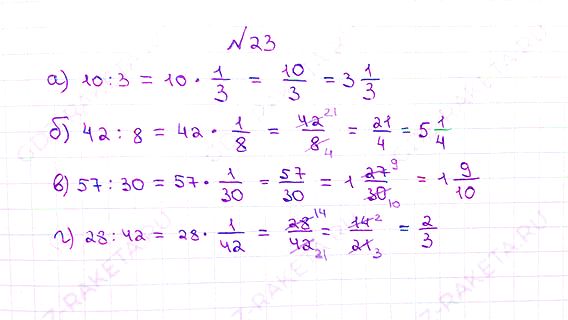 №23
а) 10 : 3 = 10 · 1/3 = 10/3 = 3 1/3
б) 42 : 8 = 42 · 1/8 = 42 21/8 4 = 21/4 = 5 1/4
в) 57 : 30 = 57 · 1/30 = 57/30 = 1 27 9/30 10 = 1 9/10
г) 28 : 42 = 28 · 1/42 = 28 14/42 21 = 14 2/21 3 = 2/3
Z-RAKETA.RU